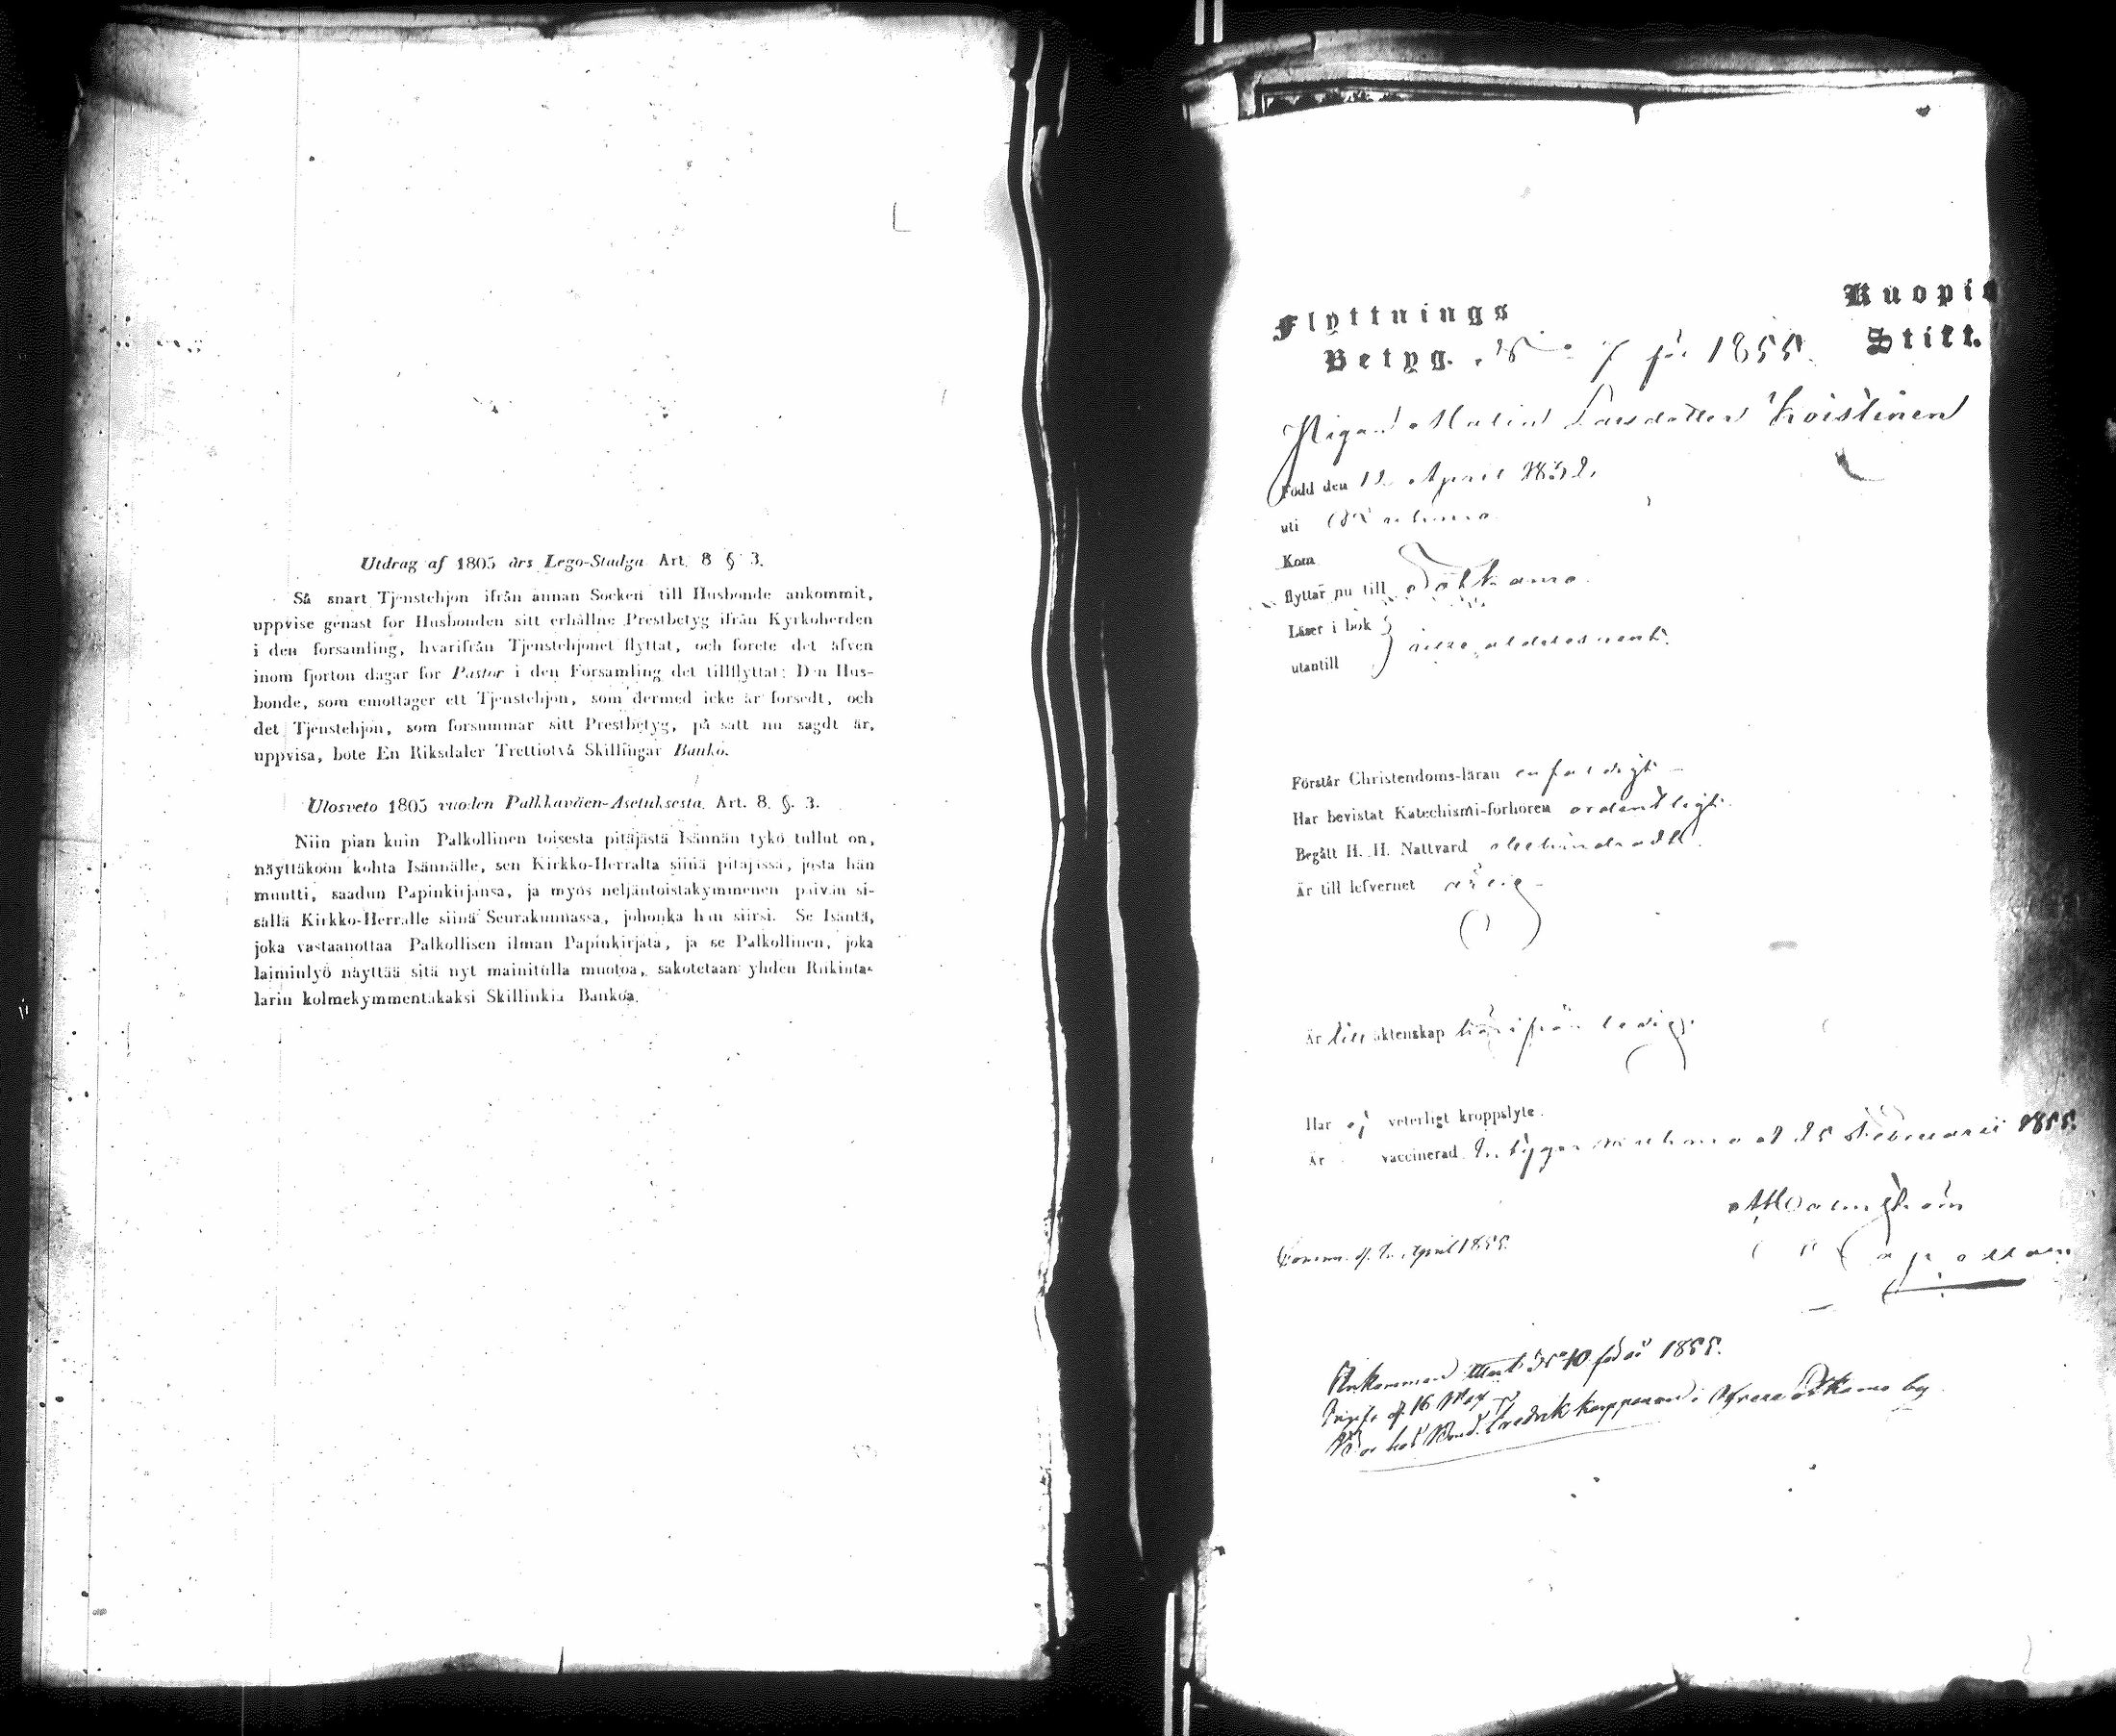 L
Utdrag af 1805 års Lego-Stadga Art. 8 § 3.
Så snart Tjenstehjon ifrån annan Socken till Husbonde ankommit,
uppvise genast för Husbonden sitt erhållne Prestbetyg ifrån Kyrkoherden
i den församling, hvarifrån Tjenstehjonet flyttat, och förete det äfven
inom fjorton dagar för Pastor i den Församling det tillflyttat: Den Hus-
bonde, som emottager ett Tjenstehjon, som dermed icke är försedt, och
det Tjenstehjon, som försummar sitt Prestbetyg, på sätt nu sagdt är,
uppvisa, böte En Riksdaler Trettiotvå Skillingar Banko.
Ulosveto 1805 vuoden Palkkaväen-Asetuksesta. Art. 8. §. 3.
Niin pian kuin Palkollinen toisesta pitäjästä Isännän tykö tullut on,
näyttäköön kohta Isännälle, sen Kirkko-Herralta siinä pitäjässä, josta hän
muutti, saadun Papinkirjansa, ja myös neljäntoistakymmenen päivän si-
sällä Kirkko-Herralle siinä Seurakunnassa, johonka hän siirsi. Se Isäntä,
joka vastaanottaa Palkollisen ilman Papinkirjata, ja se Palkollinen, joka
laiminlyö näyttää sitä nyt mainitulla muotoa, sakotetaan yhden Riikinta-
larin kolmekymmentäkaksi Skillinkiä Bankoa.
Flyttnings Kuopio
Betyg. No 7 för 1855. Stift.
Pigan Malin Larsdotter Koistinen
Född den 12 April 1832.
uti
Kom
flyttar nu till Sotkamo.
Läser i bok
utantill
Förstår Christendoms-läran enfaldigt
Har bevistat Katechismi-förhören ordentligt
Begått H. H. Nattvard obehindradt
Är till lefvernet ärlig
Är till äktenskap härifrån ledig.
Har ej veterligt kroppslyte.
Är vaccinerad. 25 Februarii 1855.
Capellan
April 1855.
Ankommen No 10 för år 1855.
16 Maj
hos Bond. Fredrik Karppanen i Sotkamo by